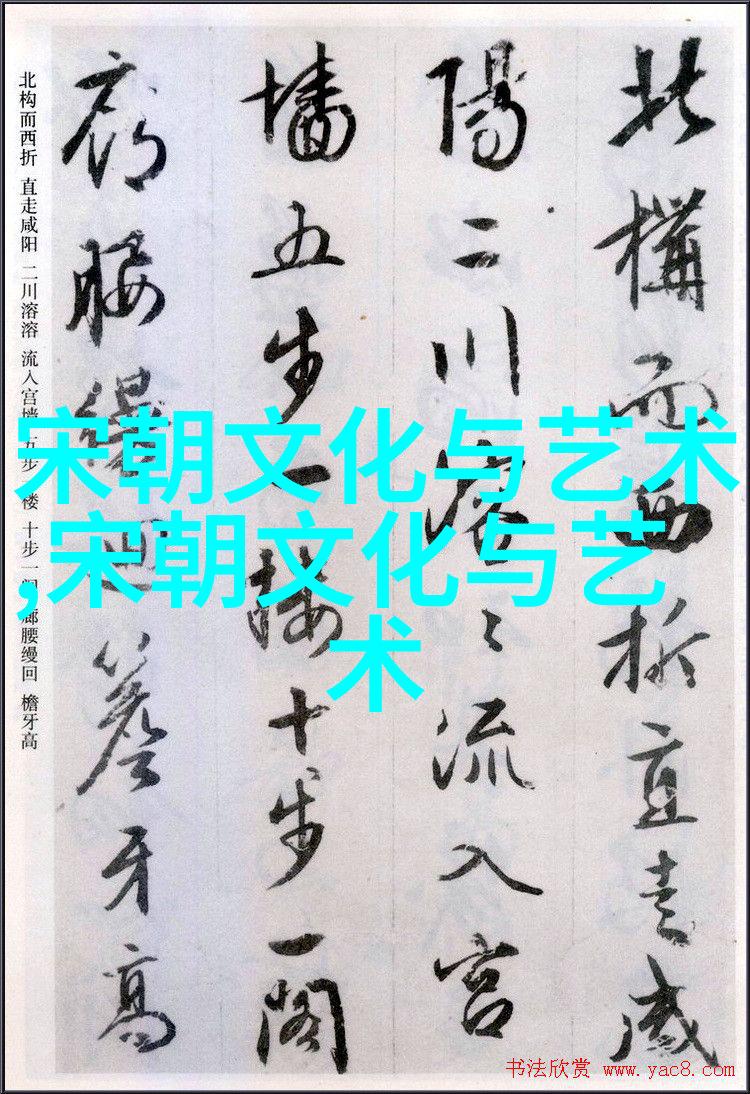 北構而西折直走咸
陽二川溶々流入宮
墻五步一樓十步一閣
廊腰縵迴簷牙高
北构而西折 直走咸阳 二川溶溶 流入宫墙 五步 楼 十步一阁 廊腰缦回 檐牙高
宋朝文化与艺术
,宋朝文化与艺
术
书法欣赏 www.yac8.com